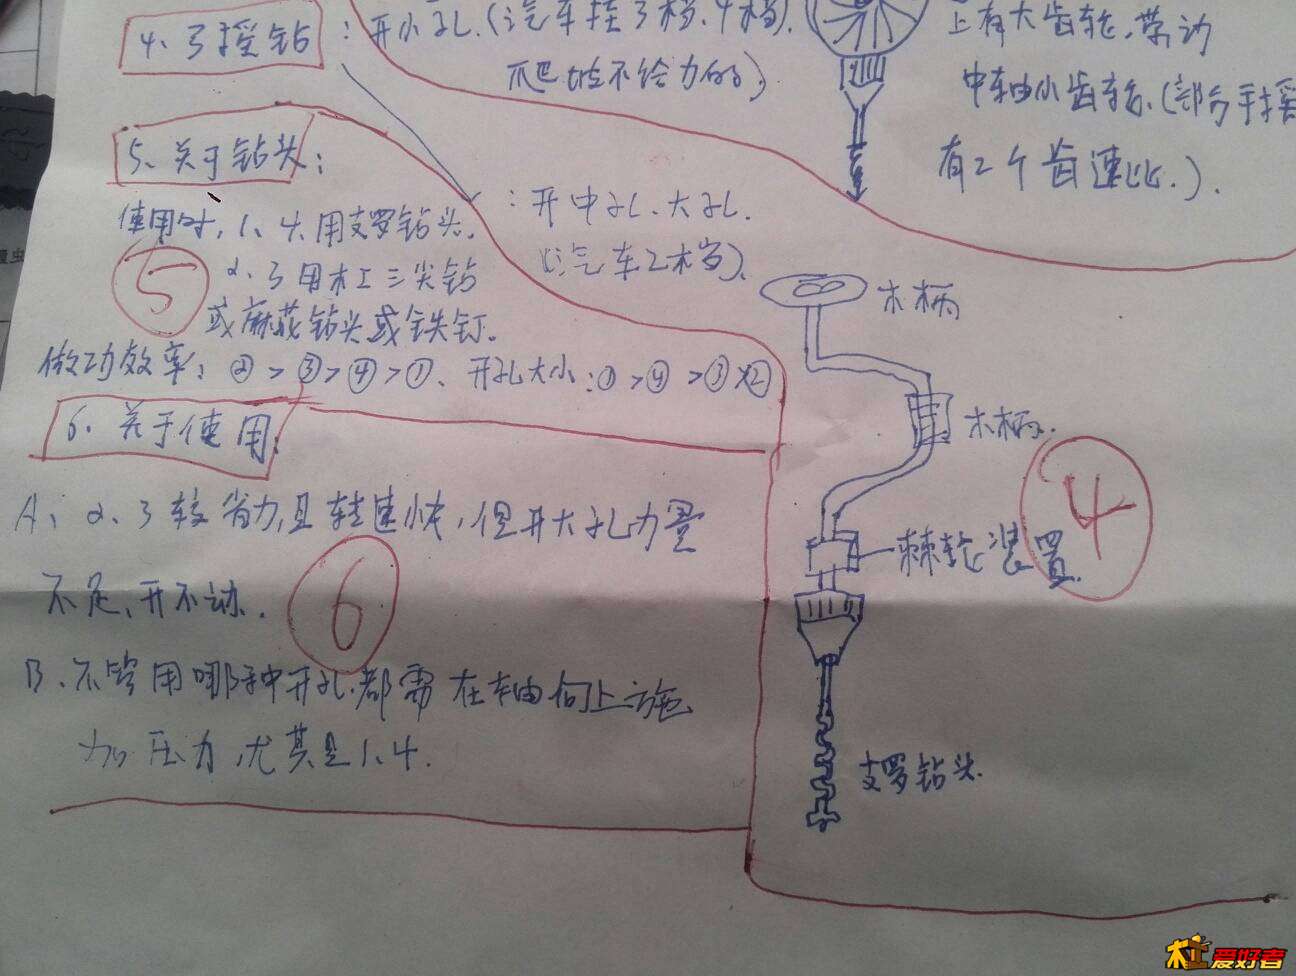 4、弓摇钻
：开小孔.(汽车挂3档.4档).
爬坡不给力的)
上有大齿轮,带动
中轴小齿轮.(部分手摇
有2个齿速比.).
5、关于钻头：
使用时,1、4.用支罗钻头.
2、3用木工三尖钻
或麻花钻头或铁钉.
5
：开中孔.大孔.
(汽车2档).
做功效率：②>③>④>①、开孔大小:①>④>③>②
6、关于使用：
A、2、3较省力,且转速快,但开大孔力量
不足,开不动.
6
B、不管用哪种开孔.都需在轴向上施
加压力,尤其是1、4.
木柄
木柄.
4
棘轮装置.
支罗钻头.
木工爱好者